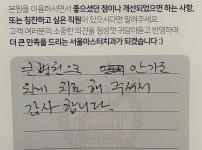 본원을 이용하시면서 좋으셨던 점이나 개선되었으면 하는 사항,
또는 칭찬하고 싶은 직원이 있으시다면 알려주세요.
고객 여러분의 소중한 의견을 정성껏 귀담아듣고 반영하여
더 큰 만족을 드리는 서울마스터치과가 되겠습니다 :)
큰병원으로 안가고
치료 해 주셔서
감사 합니다.